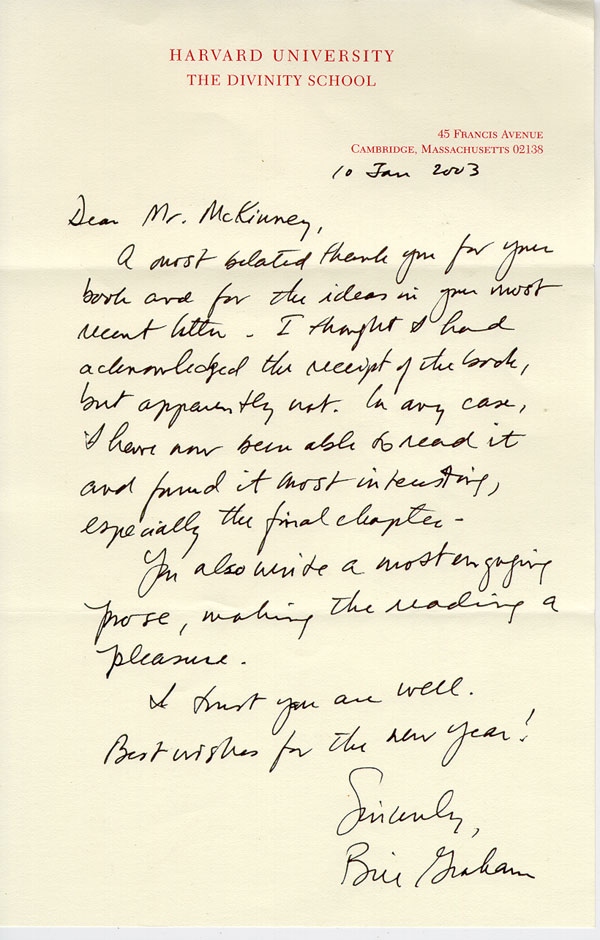 HARVARD UNIVERSITY
THE DIVINITY SCHOOL
45 FRANCIS AVENUE
CAMBRIDGE, MASSACHUSETTS 02138
10 Jan 2003
Dear Mr. McKinney,
A most belated thank you for your
book and for the ideas in your most
recent letter - I thought I had
acknowledged the receipt of the book,
but apparently not. In any case,
I have now been able to read it
and found it most interesting,
especially the final chapter -
You also write a most engaging
prose, making the reading a
pleasure.
I trust you are well.
Best wishes for the new year!
Sincerely,
Bill Graham